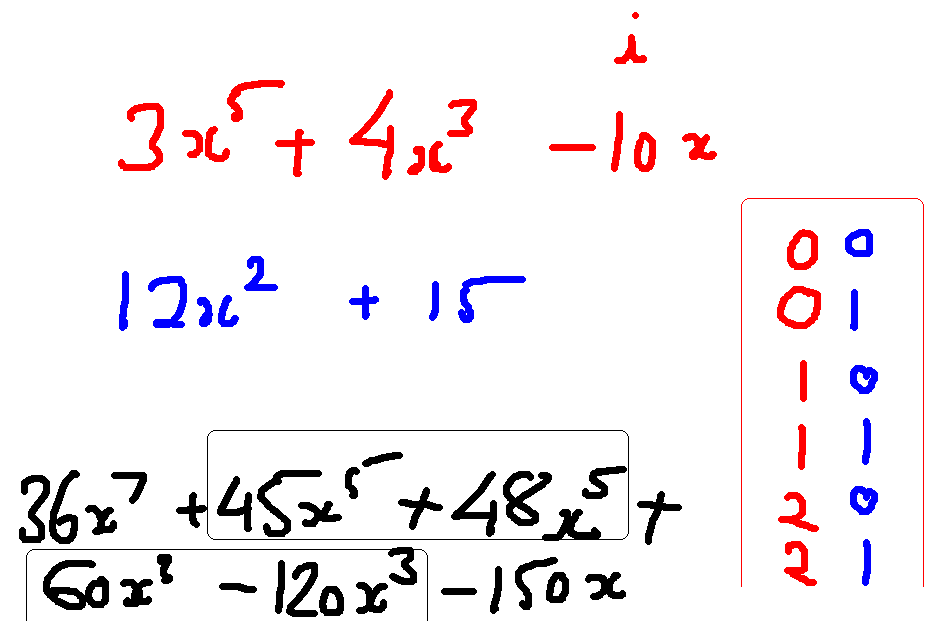 i
3x⁵ + 4x³ - 10x
12x² + 15
36x⁷ + 45x⁵ + 48x⁵ +
60x³ - 120x³ - 150x
0 0
0 1
1 0
1 1
2 0
2 1